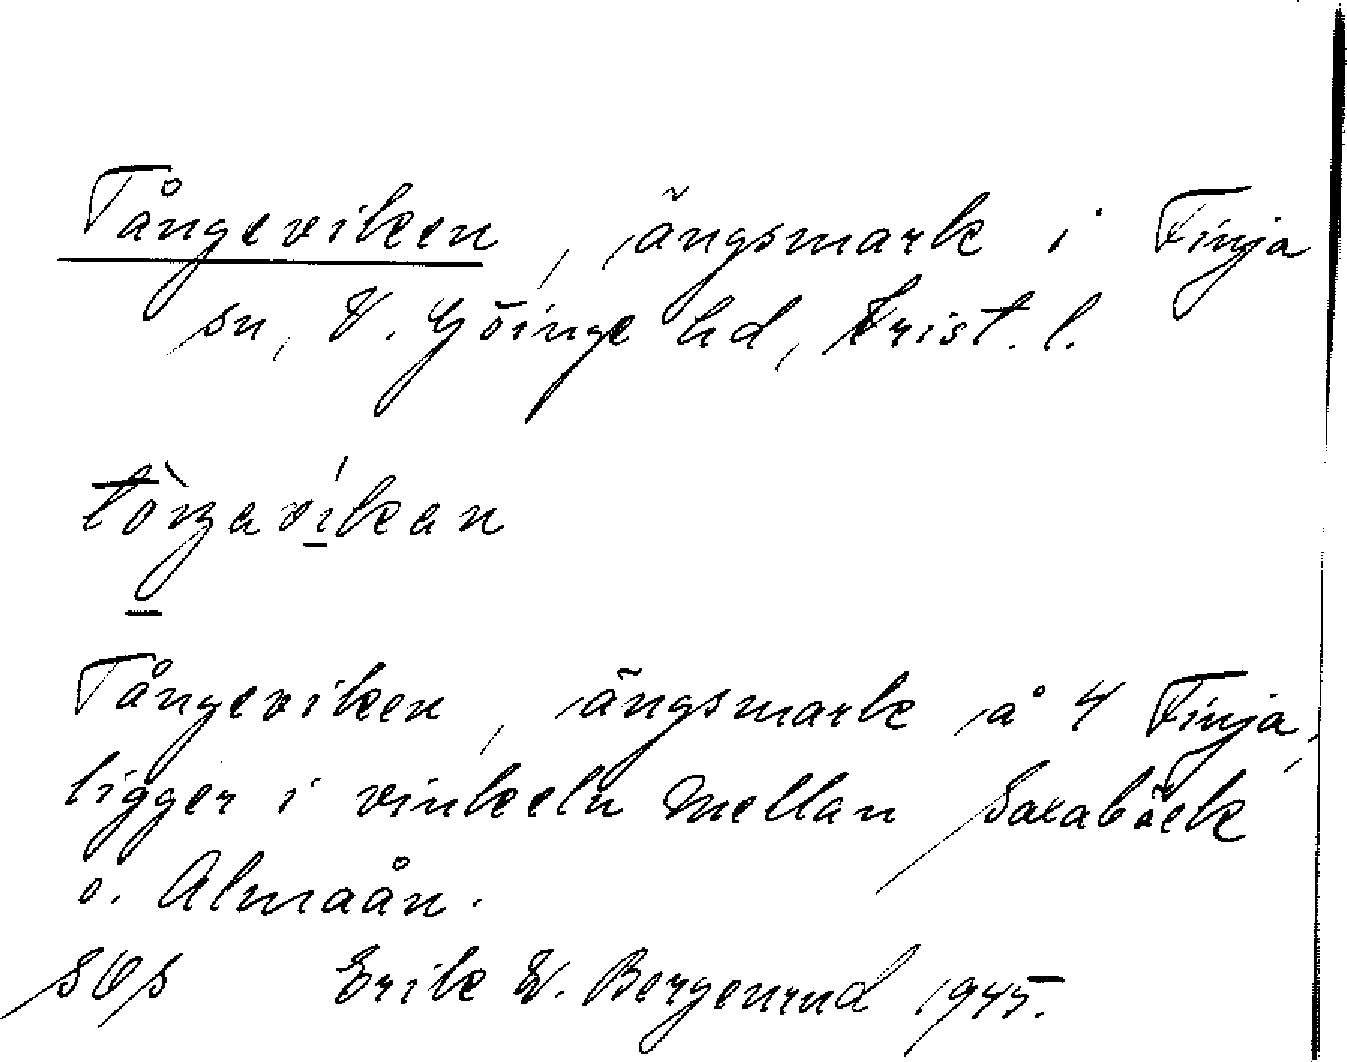 Tångeviken, ängsmark i Finja
sn, V. Göinge hd, Krist. l.
tòŋavíkan
Tångeviken, ängsmark å 4 Finja,
ligger i vinkeln mellan Saxabäck
o. Almaån.
SOS Erik W. Bergenrud 1945.